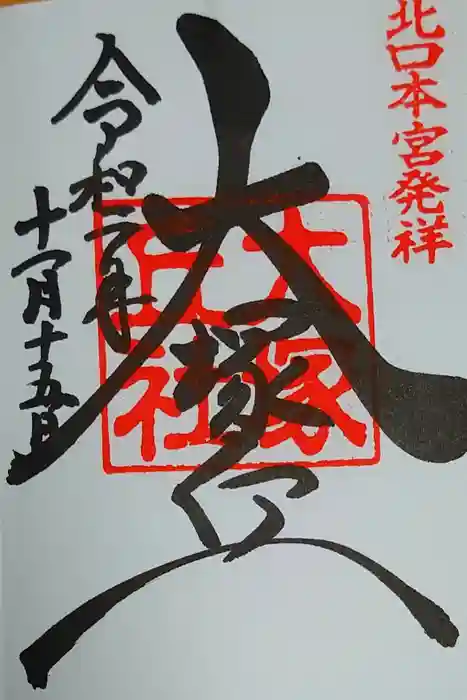 北口本宮発祥
大塚丘
大塚丘社
令和二年
十一月十五日